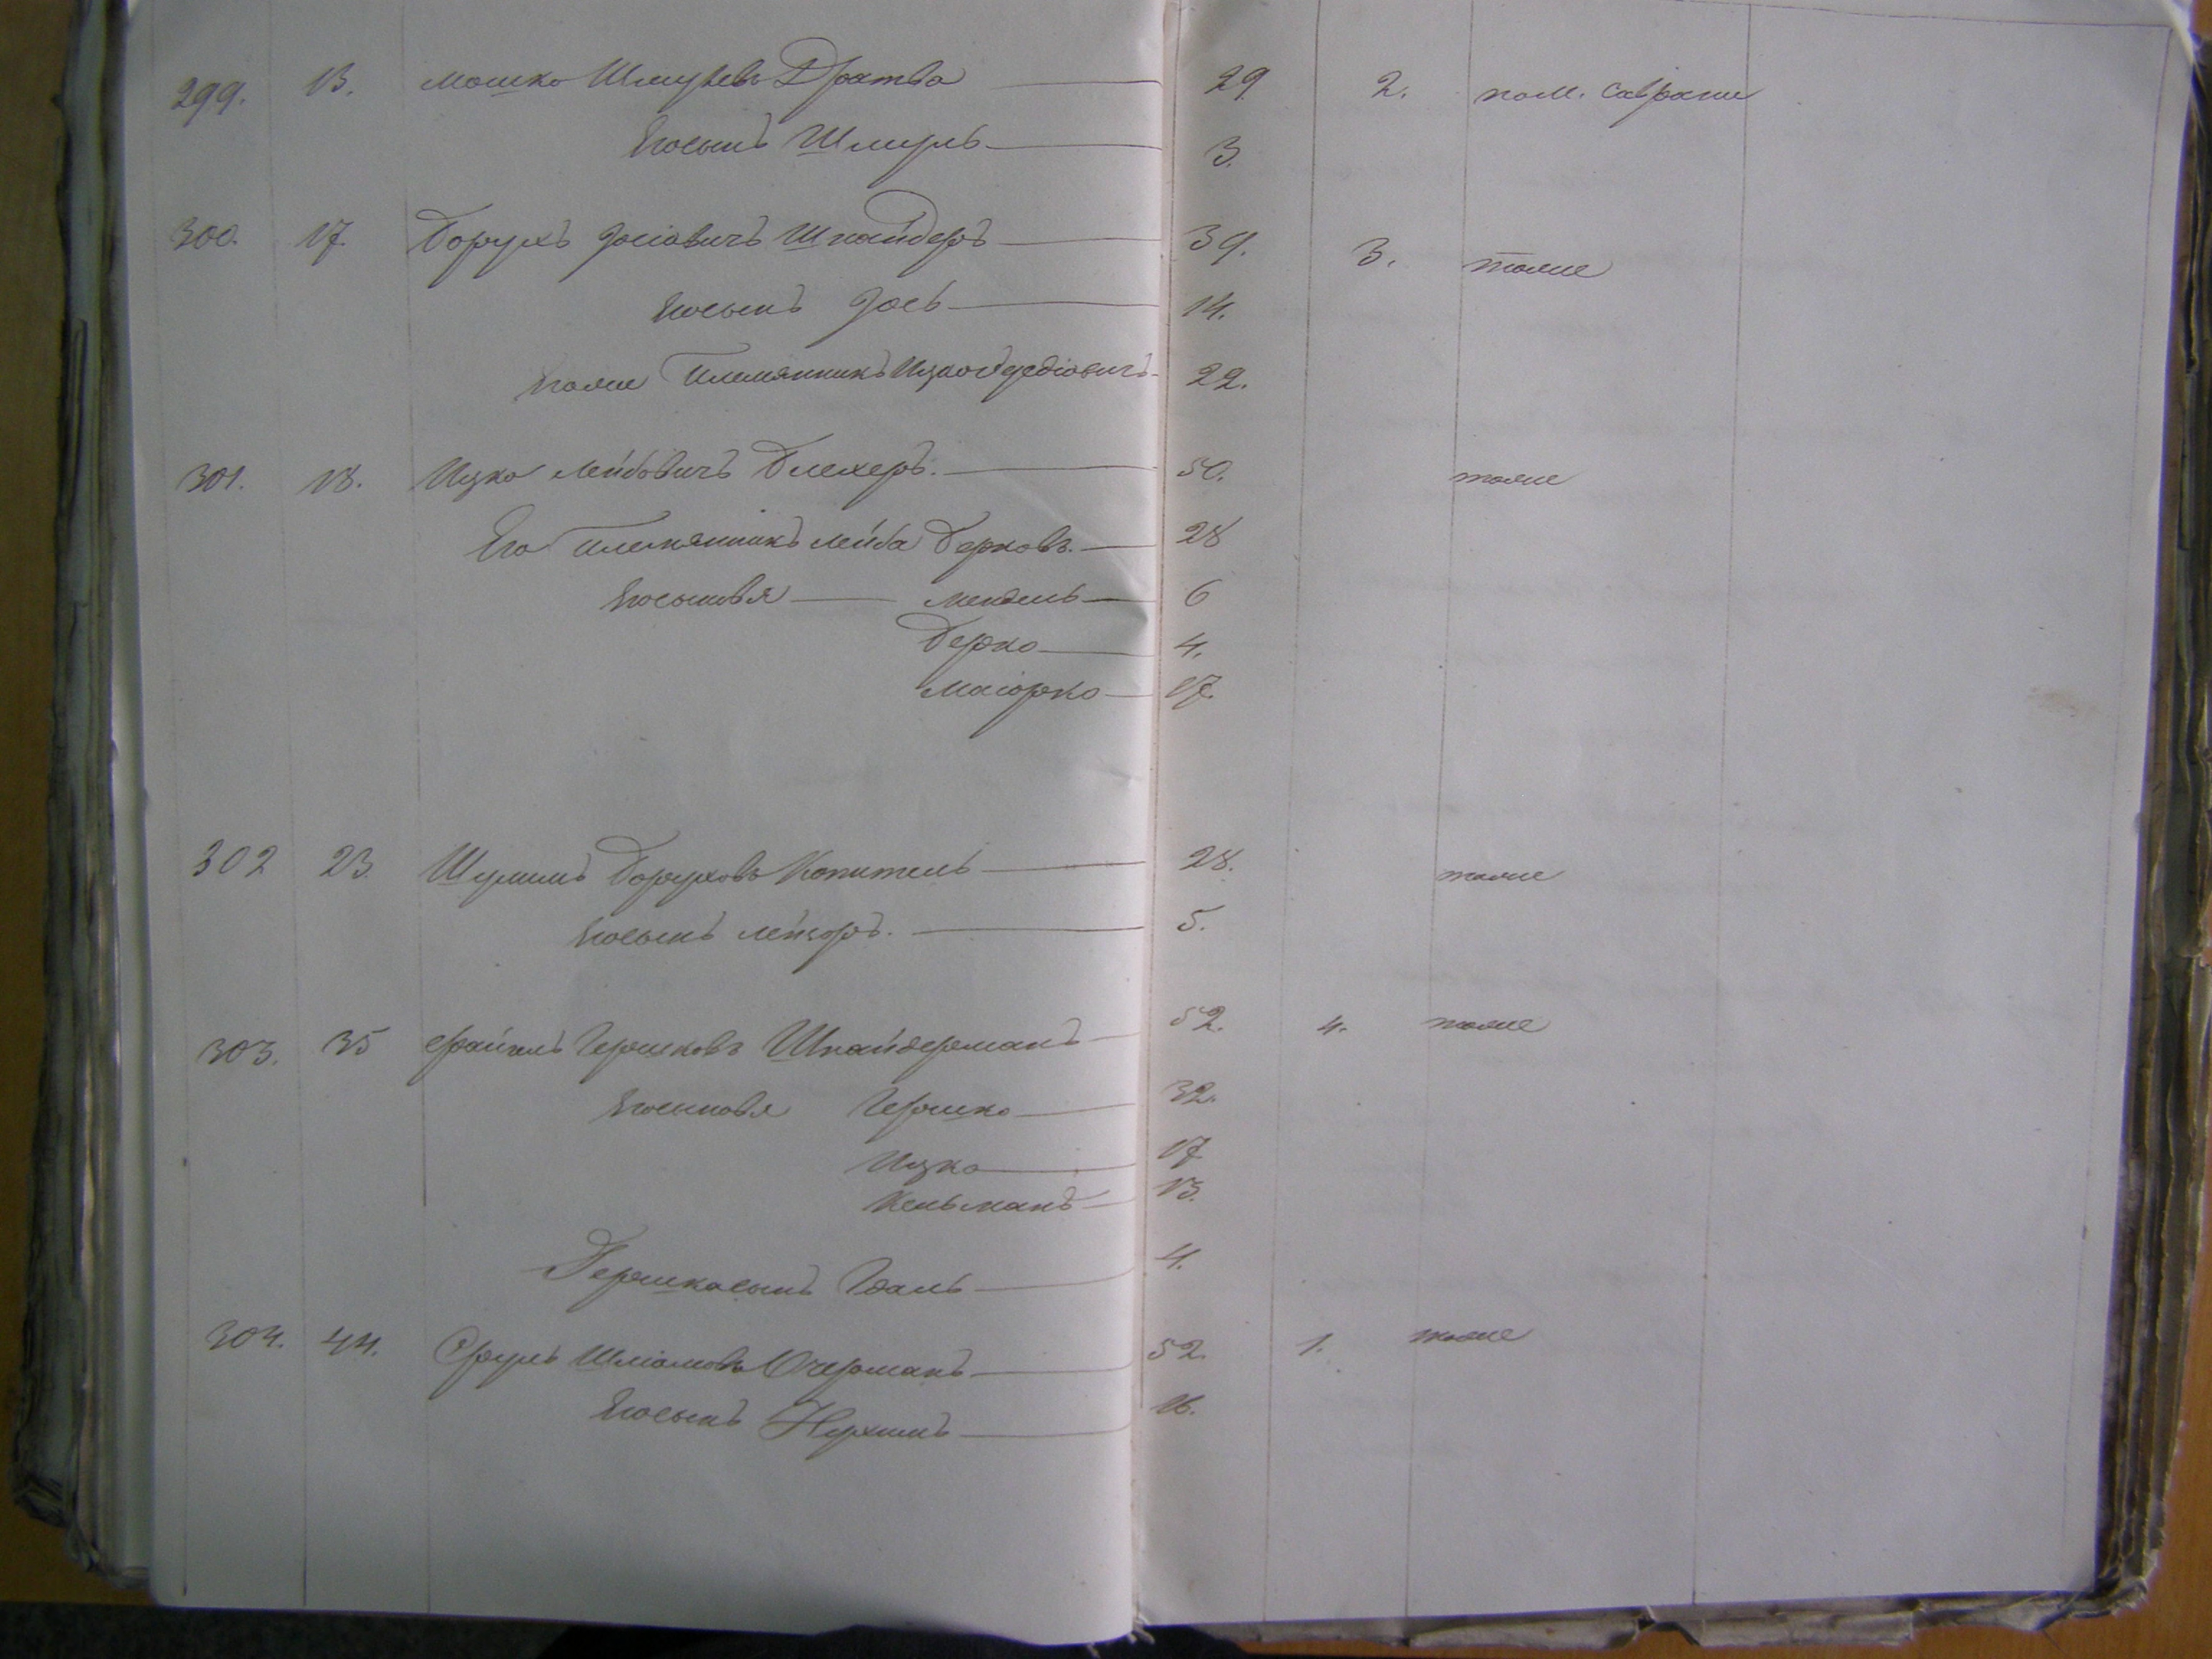 299. 13. Мошко Шмулевъ Дратва 29 2. пом. Саврани
Его сынъ Шмиль 3.
300. 17. Борухъ Іосіовичъ Шнайдеръ 39. 3. тоже
Его сынъ Іось 14.
Его же Племянникъ Ицко 22.
301. 18. Ицко Лейбовичъ Блехеръ. 50. тоже
Его племянникъ Лейба Берковъ. 28
Его сыновья Мендель 6
Берко 4.
Маіорко 17.
302 23. Шулимъ Боруховъ Копитель 28. тоже
Его сынъ Лейзоръ. 5.
303. 35 Файтель Гершковъ Шнайдерманъ 52. 4. тоже
Его сыновья Гершко 32.
Ицко 17
Кельманъ 13.
Гершка сынъ Гдаль 4.
304. 44. Сруль Шліомовъ Очерманъ 52. 1. тоже
Его сынъ Нухимъ 16.